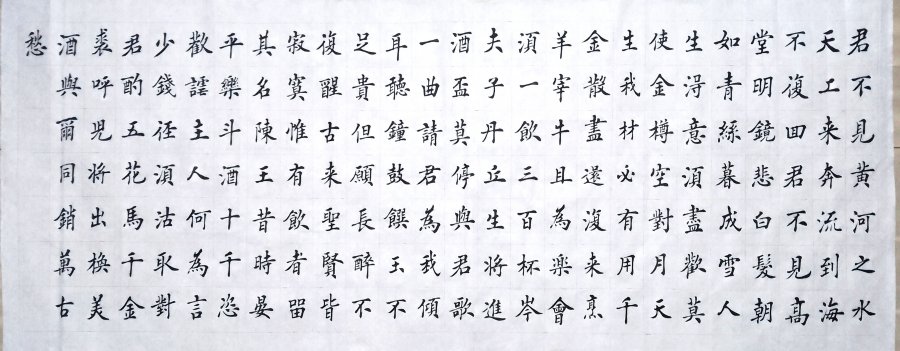 君不見黄河之水
天上来奔流到海
不復回君不見髙
堂明鏡悲白髮朝
如青絲暮成雪人
生得意須盡歡莫
使金樽空對月天
生我材必有用千
金散盡還復来烹
羊宰牛且為樂會
須一飲三百杯岑
夫子丹丘生将進
酒盃莫停與君歌
一曲請君為我傾
耳聽鐘鼓饌玉不
足貴但願長醉不
復醒古来聖賢皆
寂寞惟有飲者留
其名陳王昔時晏
平樂斗酒十千恣
歡謔主人何為言
少錢径須沽取對
君酌五花馬千金
裘呼児将出換美
酒與爾同銷萬古
愁